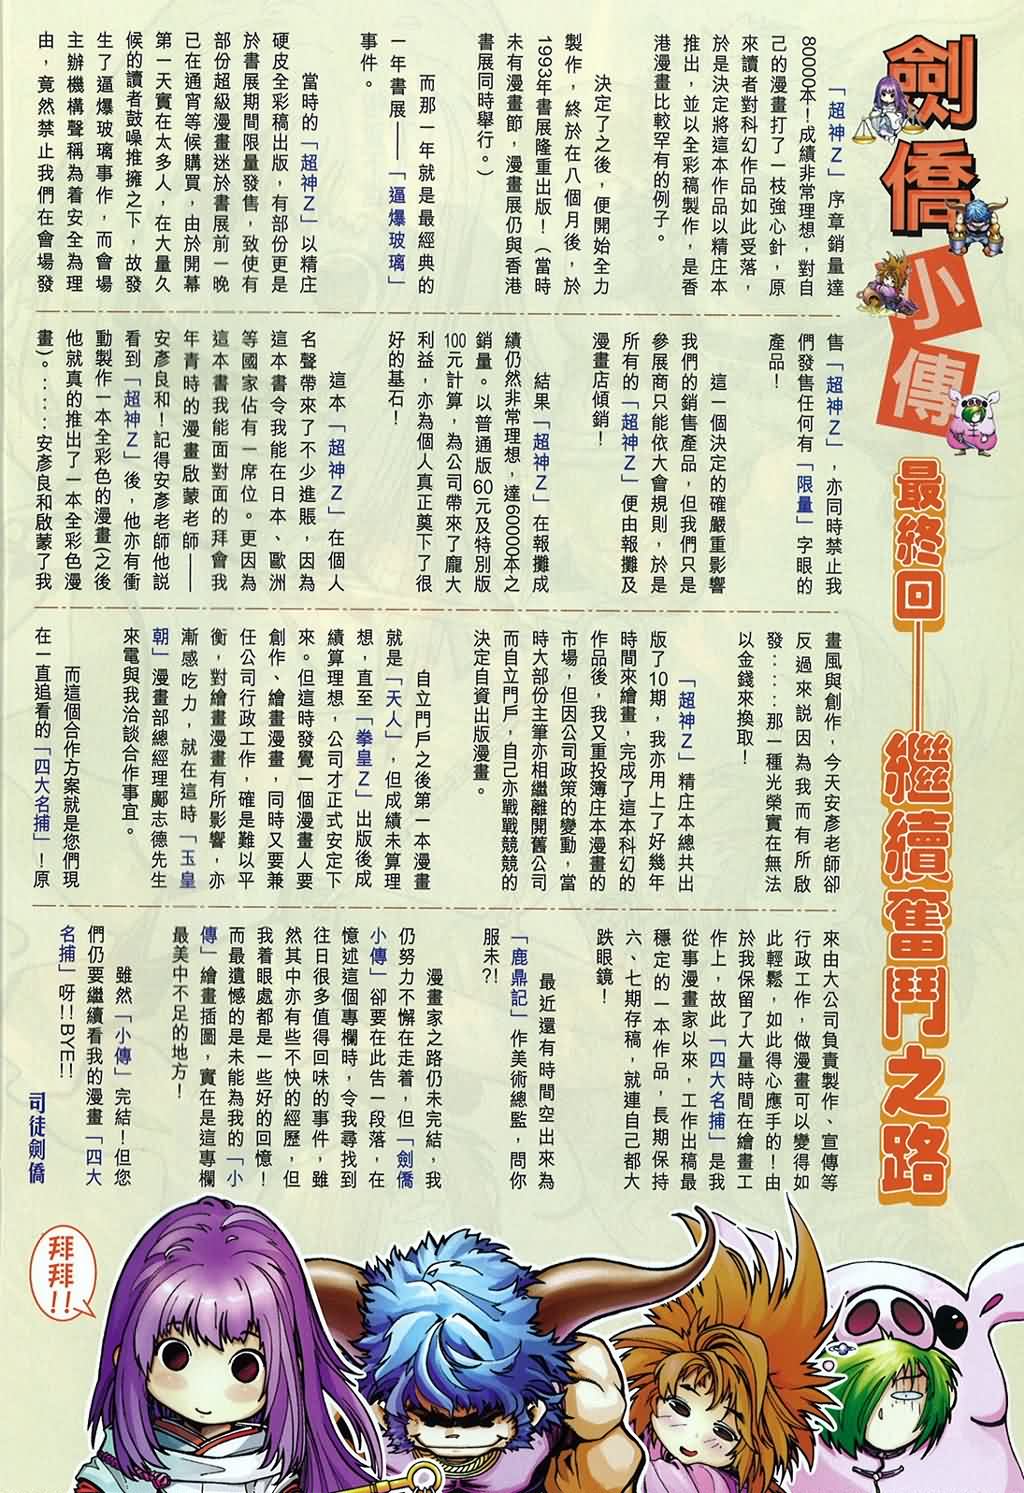 劍僑小傳
最終回——繼續奮鬥之路
「超神Z」序章銷量達
80000本！成績非常理想，對自
己的漫畫打了一枝強心針，原
來讀者對科幻作品如此受落，
於是決定將這本作品以精庄本
推出，並以全彩稿製作，是香
港漫畫比較罕有的例子。
決定了之後，便開始全力
製作，終於在八個月後，於
1993年書展隆重出版！（當時
未有漫畫節，漫畫展仍與香港
書展同時舉行。）
而那一年就是最經典的
一年書展——「逼爆玻璃」
事件。
當時的「超神Z」以精庄
硬皮全彩稿出版，有部份更是
於書展期間限量發售，致使有
部份超級漫畫迷於書展前一晚
已在通宵等候購買，由於開幕
第一天實在太多人，在大量久
候的讀者鼓噪推擁之下，故發
生了逼爆玻璃事作，而會場
主辦機構聲稱為着安全為理
由，竟然禁止我們在會場發
售「超神Z」，亦同時禁止我
們發售任何有「限量」字眼的
產品！
這一個決定的確嚴重影響
我們的銷售產品，但我們只是
參展商只能依大會規則，於是
所有的「超神Z」便由報攤及
漫畫店傾銷！
結果「超神Z」在報攤成
績仍然非常理想，達60000本之
銷量。以普通版60元及特別版
100元計算，為公司帶來了龐大
利益，亦為個人真正奠下了很
好的基石！
這本「超神Z」在個人
名聲帶來了不少進賬，因為
這本書令我能在日本、歐洲
等國家佔有一席位。更因為
這本書我能面對面的拜會我
年青時的漫畫啟蒙老師——
安彥良和！記得安彥老師他說
看到「超神Z」後，他亦有衝
動製作一本全彩色的漫畫（之後
他就真的推出了一本全彩色漫
畫）。⋯⋯安彥良和啟蒙了我
畫風與創作，今天安彥老師卻
反過來說因為我而有所啟
發⋯⋯那一種光榮實在無法
以金錢來換取！
「超神Z」精庄本總共出
版了10期，我亦用上了好幾年
時間來繪畫，完成了這本科幻的
作品後，我又重投薄庄本漫畫的
市場，但因公司政策的變動，當
時大部份主筆亦相繼離開舊公司
而自立門戶，自己亦戰戰競競的
決定自資出版漫畫。
自立門戶之後第一本漫畫
就是「天人」，但成績未算理
想，直至「拳皇Z」出版後成
績算理想，公司才正式安定下
來。但這時發覺一個漫畫人要
創作、繪畫漫畫，同時又要兼
任公司行政工作，確是難以平
衡，對繪畫漫畫有所影響，亦
漸感吃力，就在這時「玉皇
朝」漫畫部總經理鄺志德先生
來電與我洽談合作事宜。
而這個合作方案就是您們現
在一直追看的「四大名捕」！原
來由大公司負責製作、宣傳等
行政工作，做漫畫可以變得如
此輕鬆，如此得心應手的！由
於我保留了大量時間在繪畫工
作上，故此「四大名捕」是我
從事漫畫家以來，工作出稿最
穩定的一本作品，長期保持
六、七期存稿，就連自己都大
跌眼鏡！
最近還有時間空出來為
「鹿鼎記」作美術總監，問你
服未?!
漫畫家之路仍未完結，我
仍努力不懈在走着，但「劍僑
小傳」卻要在此告一段落，在
憶述這個專欄時，令我尋找到
往日很多值得回味的事件，雖
然其中亦有些不快的經歷，但
我着眼處都是一些好的回憶！
而最遺憾的是未能為我的「小
傳」繪畫插圖，實在是這專欄
最美中不足的地方！
雖然「小傳」完結！但您
們仍要繼續看我的漫畫「四大
名捕」呀!!BYE!!
司徒劍僑
拜拜!!